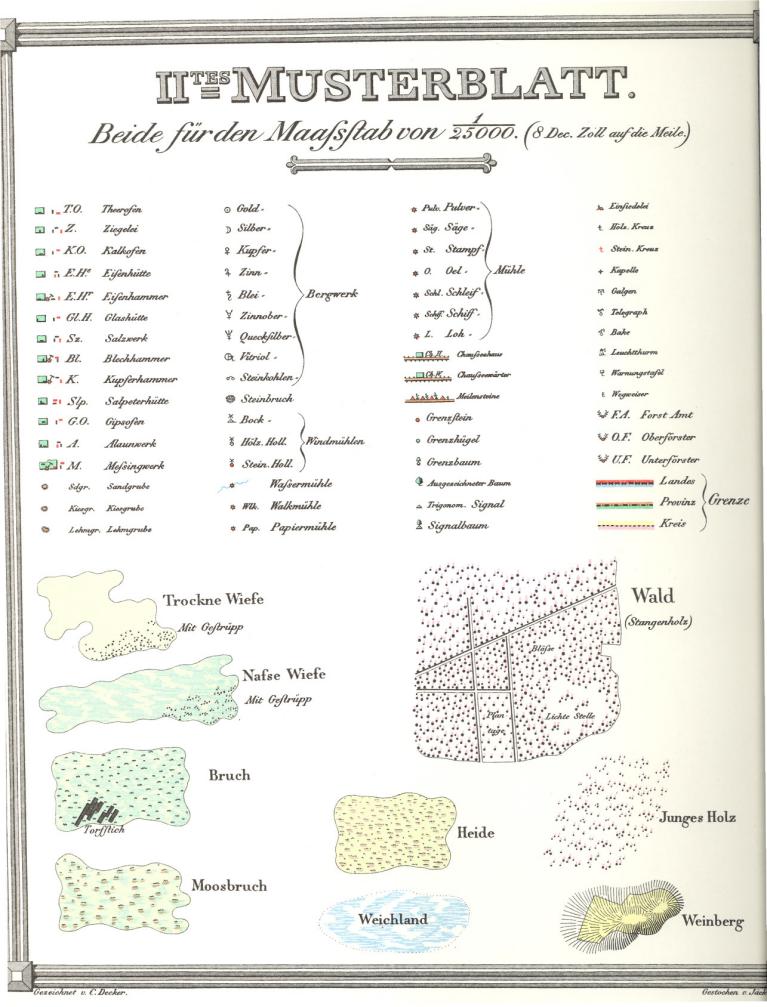 IITES MUSTERBLATT.
Beide für den Maaſsſtab von 1/25000. (8 Dec. Zoll auf die Meile.)
T.O. Theerofen
Z. Ziegelei
K.O. Kalkofen
E.He Eiſenhütte
E.Hr Eiſenhammer
Gl.H. Glashütte
Sz. Salzwerk
Bl. Blechhammer
K. Kupferhammer
Slp. Salpeterhütte
G.O. Gipsofen
A. Alaunwerk
M. Meſsingwerk
Sdgr. Sandgrube
Kiesgr. Kiesgrube
Lehmgr. Lehmgrube
Gold-
Silber-
Kupfer-
Zinn-
Blei-
Zinnober-
Queckſilber-
Vitriol-
Steinkohlen-
Bergwerk
Steinbruch
Bock-
Holz. Holl.
Stein. Holl.
Windmühlen
Waſsermühle
Wlk. Walkmühle
Pap. Papiermühle
Pulv. Pulver-
Säg. Säge-
St. Stampf-
O. Oel-
Schl. Schleif-
Schif. Schiff-
L. Loh-
Mühle
Ch.H. Chauſseehaus
Ch.W. Chauſseewärter
Meilensteine
Grenzſtein
Grenzhügel
Grenzbaum
Ausgezeichneter Baum
Trigonom. Signal
Signalbaum
Einſiedelei
Holz. Kreuz
Stein. Kreuz
Kapelle
Galgen
Telegraph
Bake
Leuchtthurm
Warnungstafel
Wegweiser
F.A. Forst Amt
O.F. Oberförster
U.F. Unterförster
Landes
Provinz
Kreis
Grenze
Trockne Wieſe
Mit Geſtrüpp
Naſse Wieſe
Mit Geſtrüpp
Bruch
Torfſtich
Moosbruch
Wald
(Stangenholz)
Blöſse
Plan
tage
Lichte Stelle
Heide
Weichland
Junges Holz
Weinberg
Gezeichnet v. C. Decker.
Gestochen v. Jäck